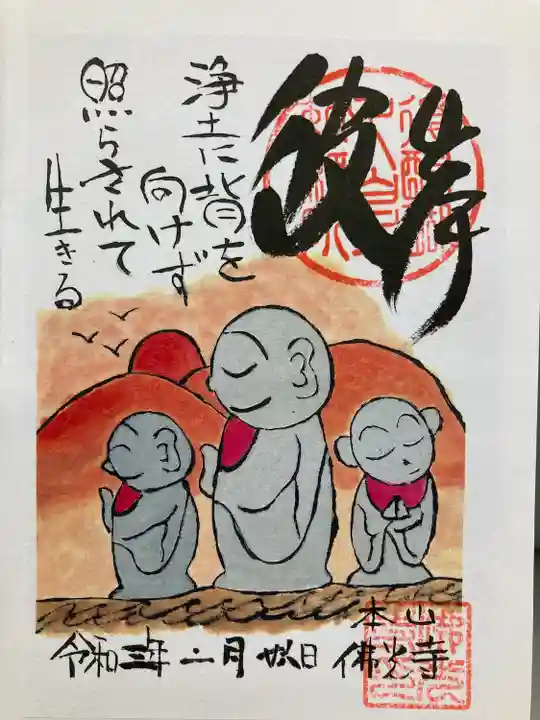 彼岸
浄土に背を
向けず
照らされて
生きる
本山
佛光寺
令和三年二月廿八日